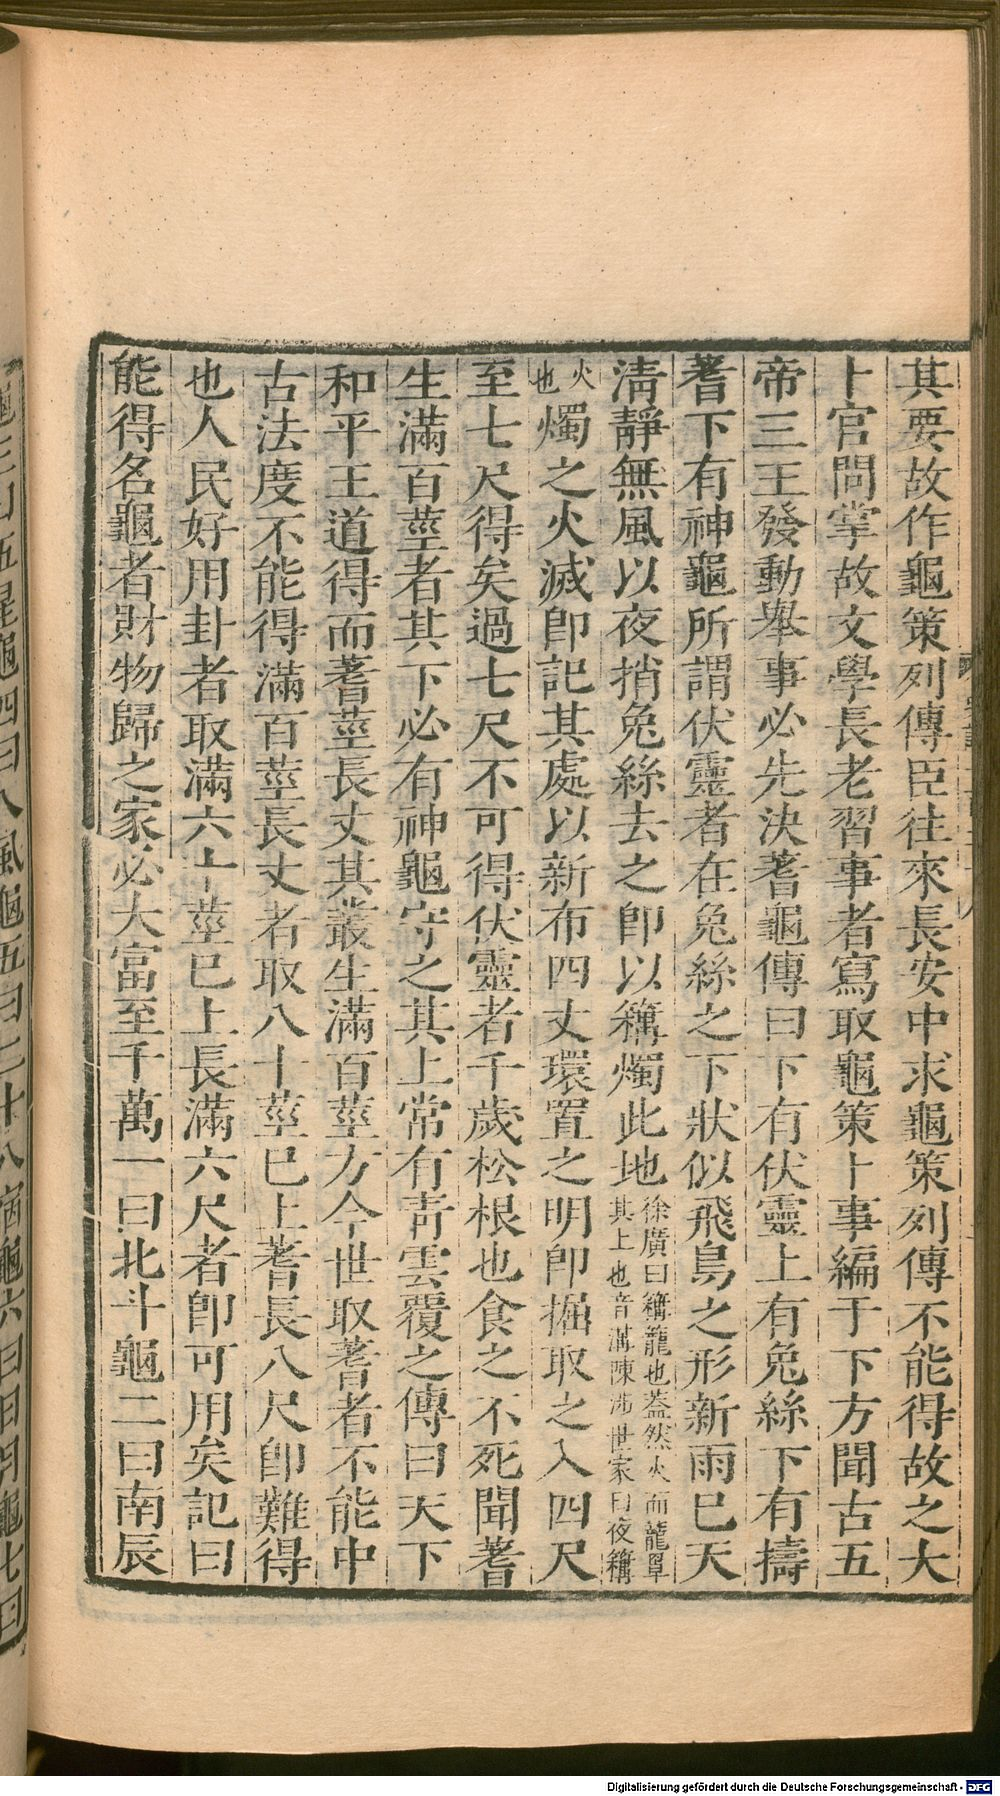 其要故作龜策列傳臣往來長安中求龜策列傳不能得故之大
卜官問掌故文學長老習事者寫取龜策卜事編于下方聞古五
帝三王發動舉事必先決蓍龜傳曰下有伏靈上有兔絲下有擣
蓍下有神龜所謂伏靈者在兔絲之下狀似飛鳥之形新雨已天
淸靜無風以夜捎兔絲去之卽以篝燭此地徐廣曰篝籠也蓋然火而籠罩
其上也音溝陳涉世家曰夜篝
火
也燭之火滅卽記其處以新布四丈環置之明卽掘取之入四尺
至七尺得矣過七尺不可得伏靈者千歲松根也食之不死聞蓍
生滿百莖者其下必有神龜守之其上常有靑雲覆之傳曰天下
和平王道得而蓍莖長丈其叢生滿百莖方今世取蓍者不能中
古法度不能得滿百莖長丈者取八十莖已上蓍長八尺卽難得
也人民好用卦者取滿六十莖已上長滿六尺者卽可用矣記曰
能得名龜者財物歸之家必大富至千萬一曰北斗龜二曰南辰
龜三曰五星龜四曰八風龜五曰二十八宿龜六曰日月龜七曰
Digitalisierung gefördert durch die Deutsche Forschungsgemeinschaft - DFG